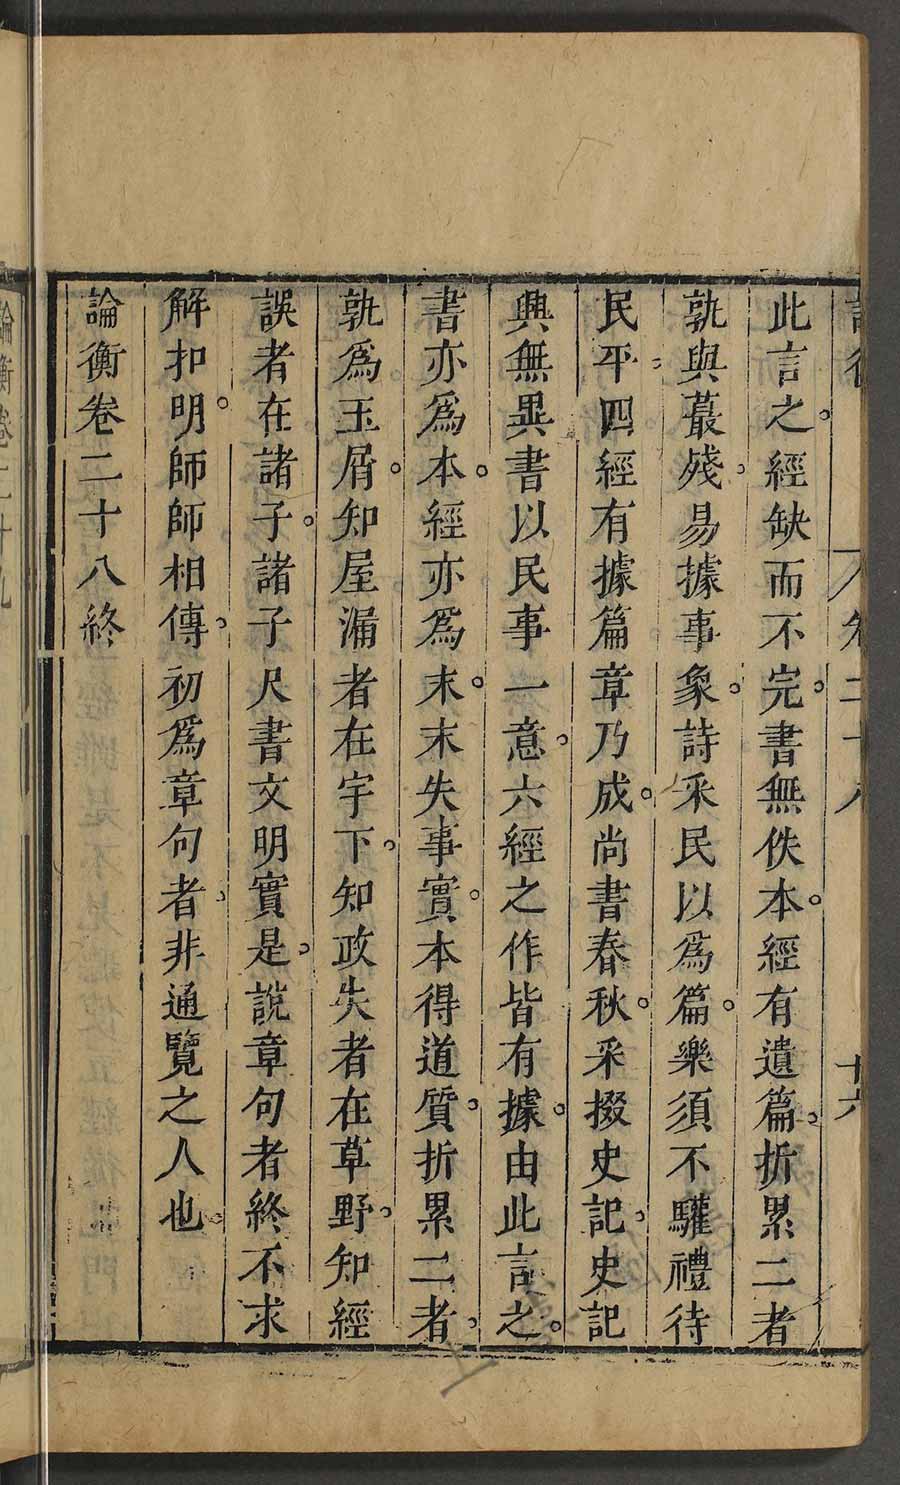 卷二十八 十六
此言之。經缺而不完。書無佚本。經有遺篇。折累二者
孰與蕞殘。易據事象。詩采民以爲篇。樂須不驩禮待
民平四經有據篇章乃成。尚書春秋。采掇史記。史記
興無異書以民事一意。六經之作皆有據。由此言之。
書亦爲本。經亦爲末。末失事實。本得道質。折累二者。
孰爲玉屑。知屋漏者在宇下。知政失者在草野。知經
誤者在諸子。諸子尺書文明實是。說章句者終不求
解扣明。師師相傳。初爲章句者。非通覽之人也。
論衡卷二十八終